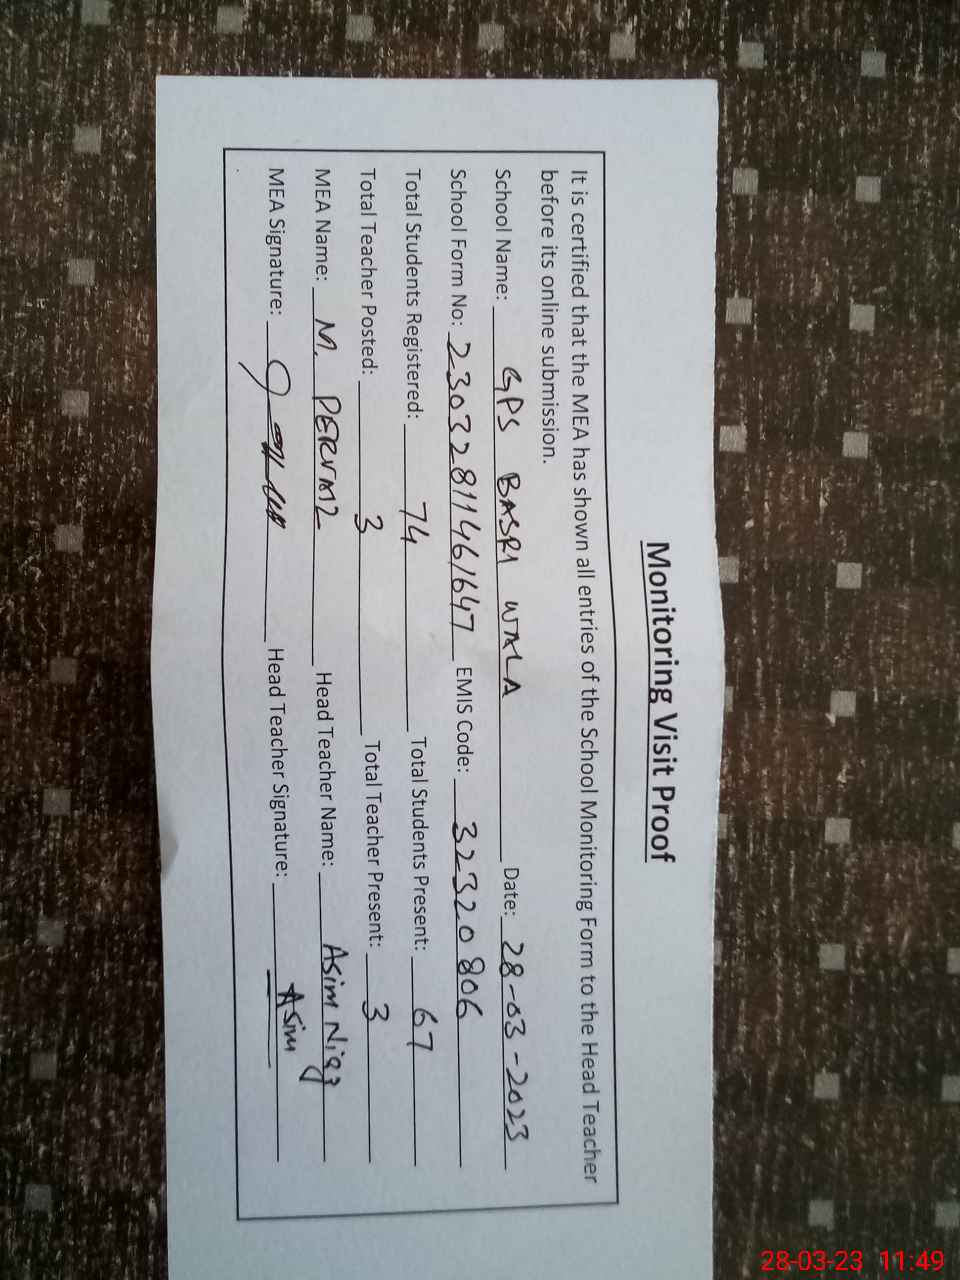 Monitoring Visit Proof
It is certified that the MEA has shown all entries of the School Monitoring Form to the Head Teacher
before its online submission.
School Name: GPS BASRI WALA Date: 28-03-2023
School Form No: 23032811461647 EMIS Code: 32320806
Total Students Registered: 74 Total Students Present: 67
Total Teacher Posted: 3 Total Teacher Present: 3
MEA Name: M. PERVAIZ Head Teacher Name: Asim Niaz
MEA Signature: Head Teacher Signature: Asim
28-03-23 11:49